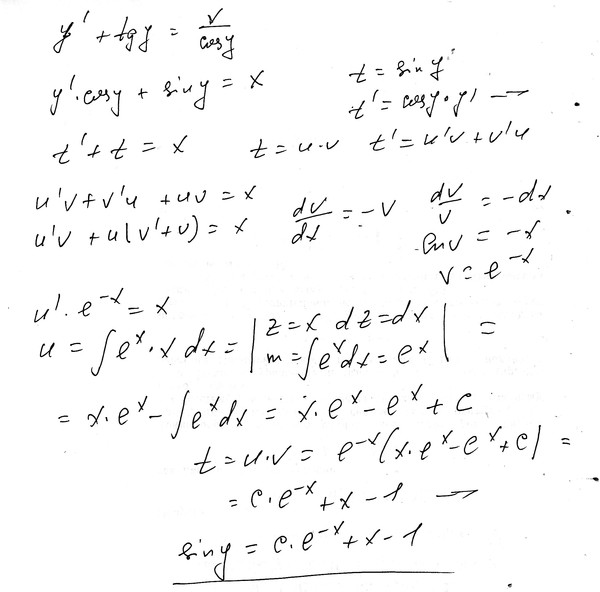 y' + tg y = x / cos y
y'·cos y + sin y = x
t = sin y
t' = cos y · y'
t' + t = x t = u·v t' = u'v + v'u
u'v + v'u + uv = x
u'v + u(v'+v) = x
dv/dx = -v
dv/v = -dx
ln v = -x
v = e^{-x}
u'·e^{-x} = x
u = ∫e^x·x dx = | z = x dz = dx
m = ∫e^x dx = e^x | =
= x·e^x - ∫e^x dx = x·e^x - e^x + c
t = u·v = e^{-x}(x·e^x - e^x + c) =
= c·e^{-x} + x - 1
sin y = c·e^{-x} + x - 1